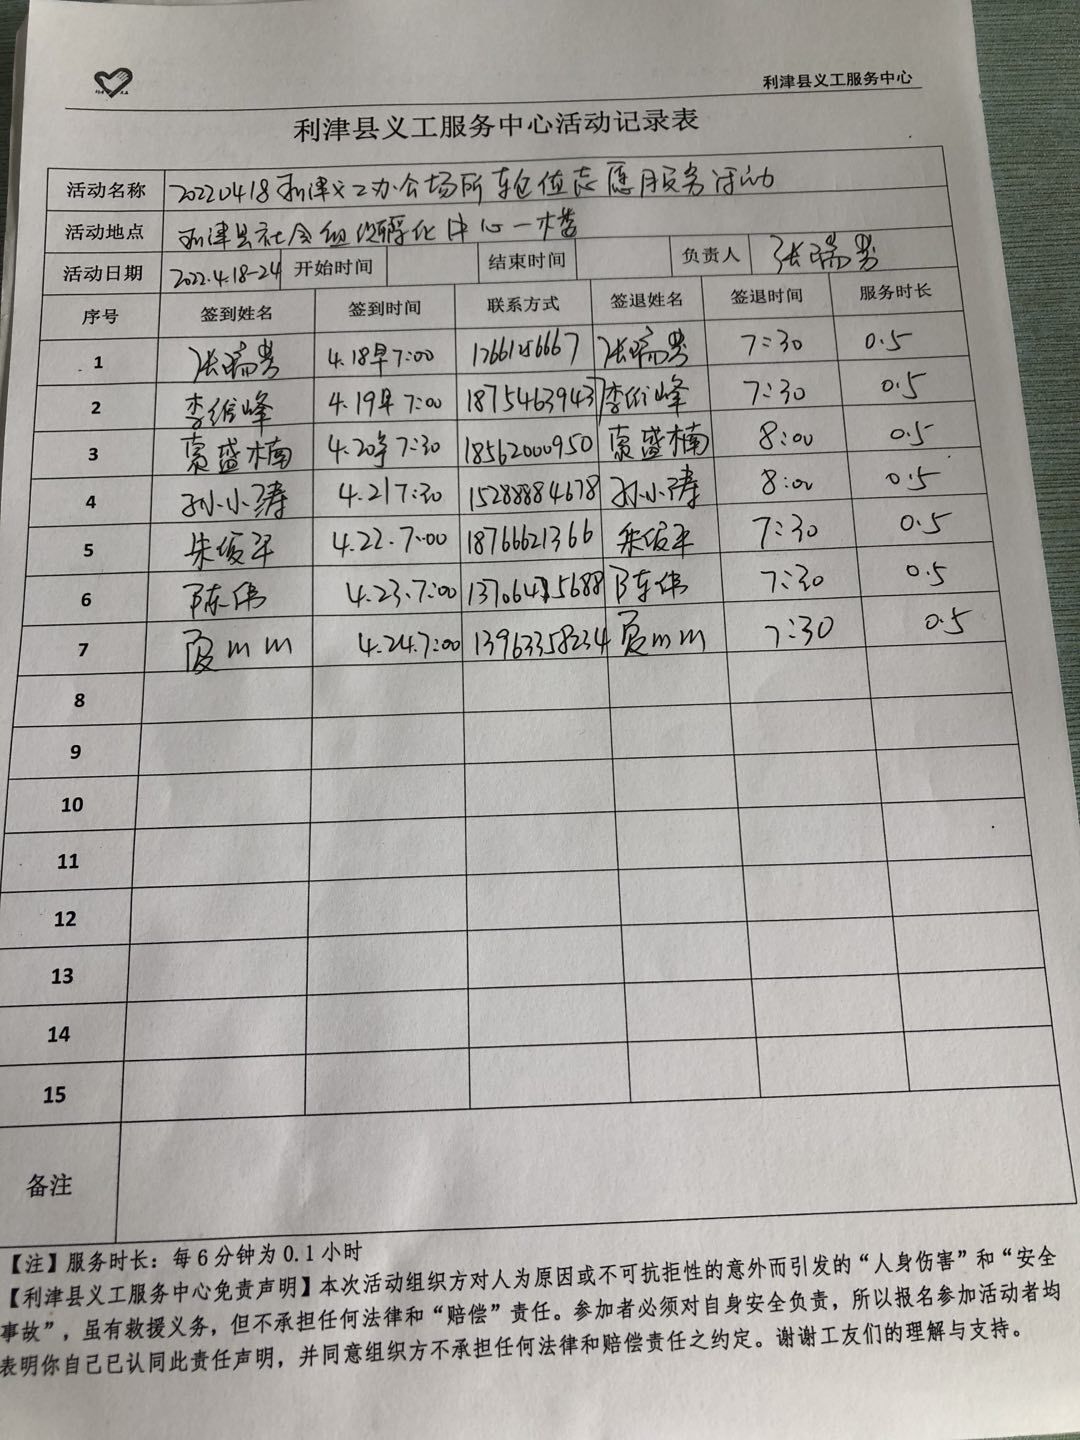 利津县义工服务中心
利津县义工服务中心活动记录表
活动名称 20220418利津义工办公场所轮值志愿服务活动
活动地点 利津县社会组织孵化中心一楼
活动日期 2022.4.18-24 开始时间 结束时间 负责人 张瑞
序号 签到姓名 签到时间 联系方式 签退姓名 签退时间 服务时长
1 张瑞 4.18早7:00 张瑞 7:30 0.5
2 李维峰 4.19早7:00 18754639437 李维峰 7:30 0.5
3 盛楠 4.20早7:30 18562000950 盛楠 8:00 0.5
4 孙小涛 4.21 7:30 15288884678 孙小涛 8:00 0.5
5 朱俊平 4.22.7:00 18766621366 朱俊平 7:30 0.5
6 陈伟 4.23.7:00 陈伟 7:30 0.5
7 夏mm 4.24.7:00 13963358234 夏mm 7:30 0.5
8
9
10
11
12
13
14
15
备注
【注】服务时长：每6分钟为0.1小时
【利津县义工服务中心免责声明】本次活动组织方对人为原因或不可抗拒性的意外而引发的“人身伤害”和“安全
事故”，虽有救援义务，但不承担任何法律和“赔偿”责任。参加者必须对自身安全负责，所以报名参加活动者均
表明你自己已认同此责任声明，并同意组织方不承担任何法律和赔偿责任之约定。谢谢工友们的理解与支持。